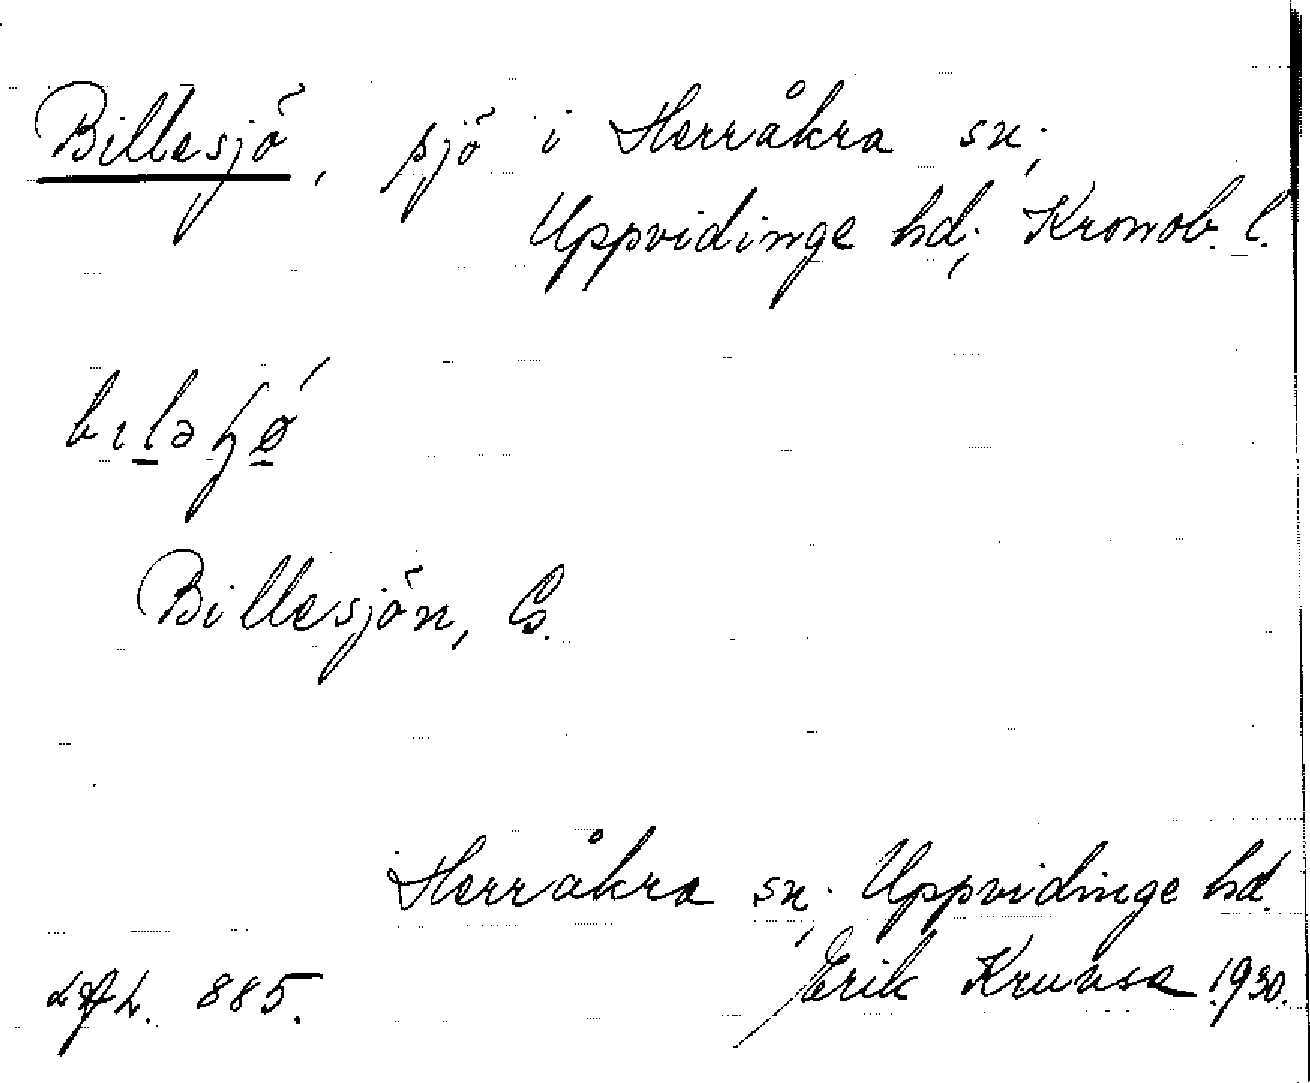 Billesjö, sjö i Herråkra sn.,
Uppvidinge hd., Kronob. l.
Billesjön, G.
Herråkra sn., Uppvidinge hd.
LAL. 885. Erik Kruusa 1930.